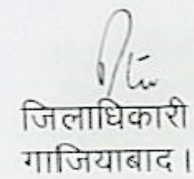 जिलाधिकारी
गाजियाबाद।